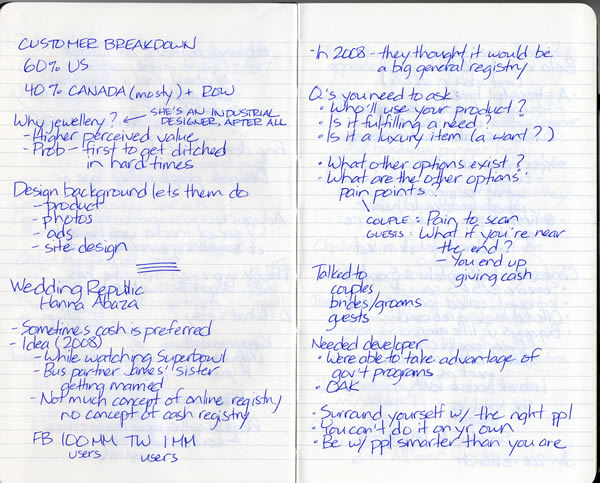 CUSTOMER BREAKDOWN
60% US
40% CANADA (mosty) + ROW
Why jewellery? ← SHE'S AN INDUSTRIAL
DESIGNER, AFTER ALL
- Higher perceived value
- Prob - first to get ditched
in hard times
Design background lets them do
- product
- photos
- ads
- site design
Wedding Republic
Hanna Abaza
- Sometimes cash is preferred
- Idea (2008)
- While watching Superbowl
- Bus partner James' sister
getting married
- Not much concept of online registry
no concept of cash registry
FB 100MM TW 1MM
users users
- In 2008 - they thought it would be
a big general registry
Q's you need to ask:
• Who'll use your product?
• Is it fulfilling a need?
• Is it a luxury item (a want?)
• What other options exist?
• What are the other options'
pain points?
COUPLE: Pain to scan
GUESTS: What if you're near
the end?
- You end up
giving cash
Talked to
couples
brides/grooms
guests
Needed developer
• Were able to take advantage of
gov't programs
• OAK
• Surround yourself w/ the right ppl
• You can't do it on yr own
• Be w/ ppl smarter than you are